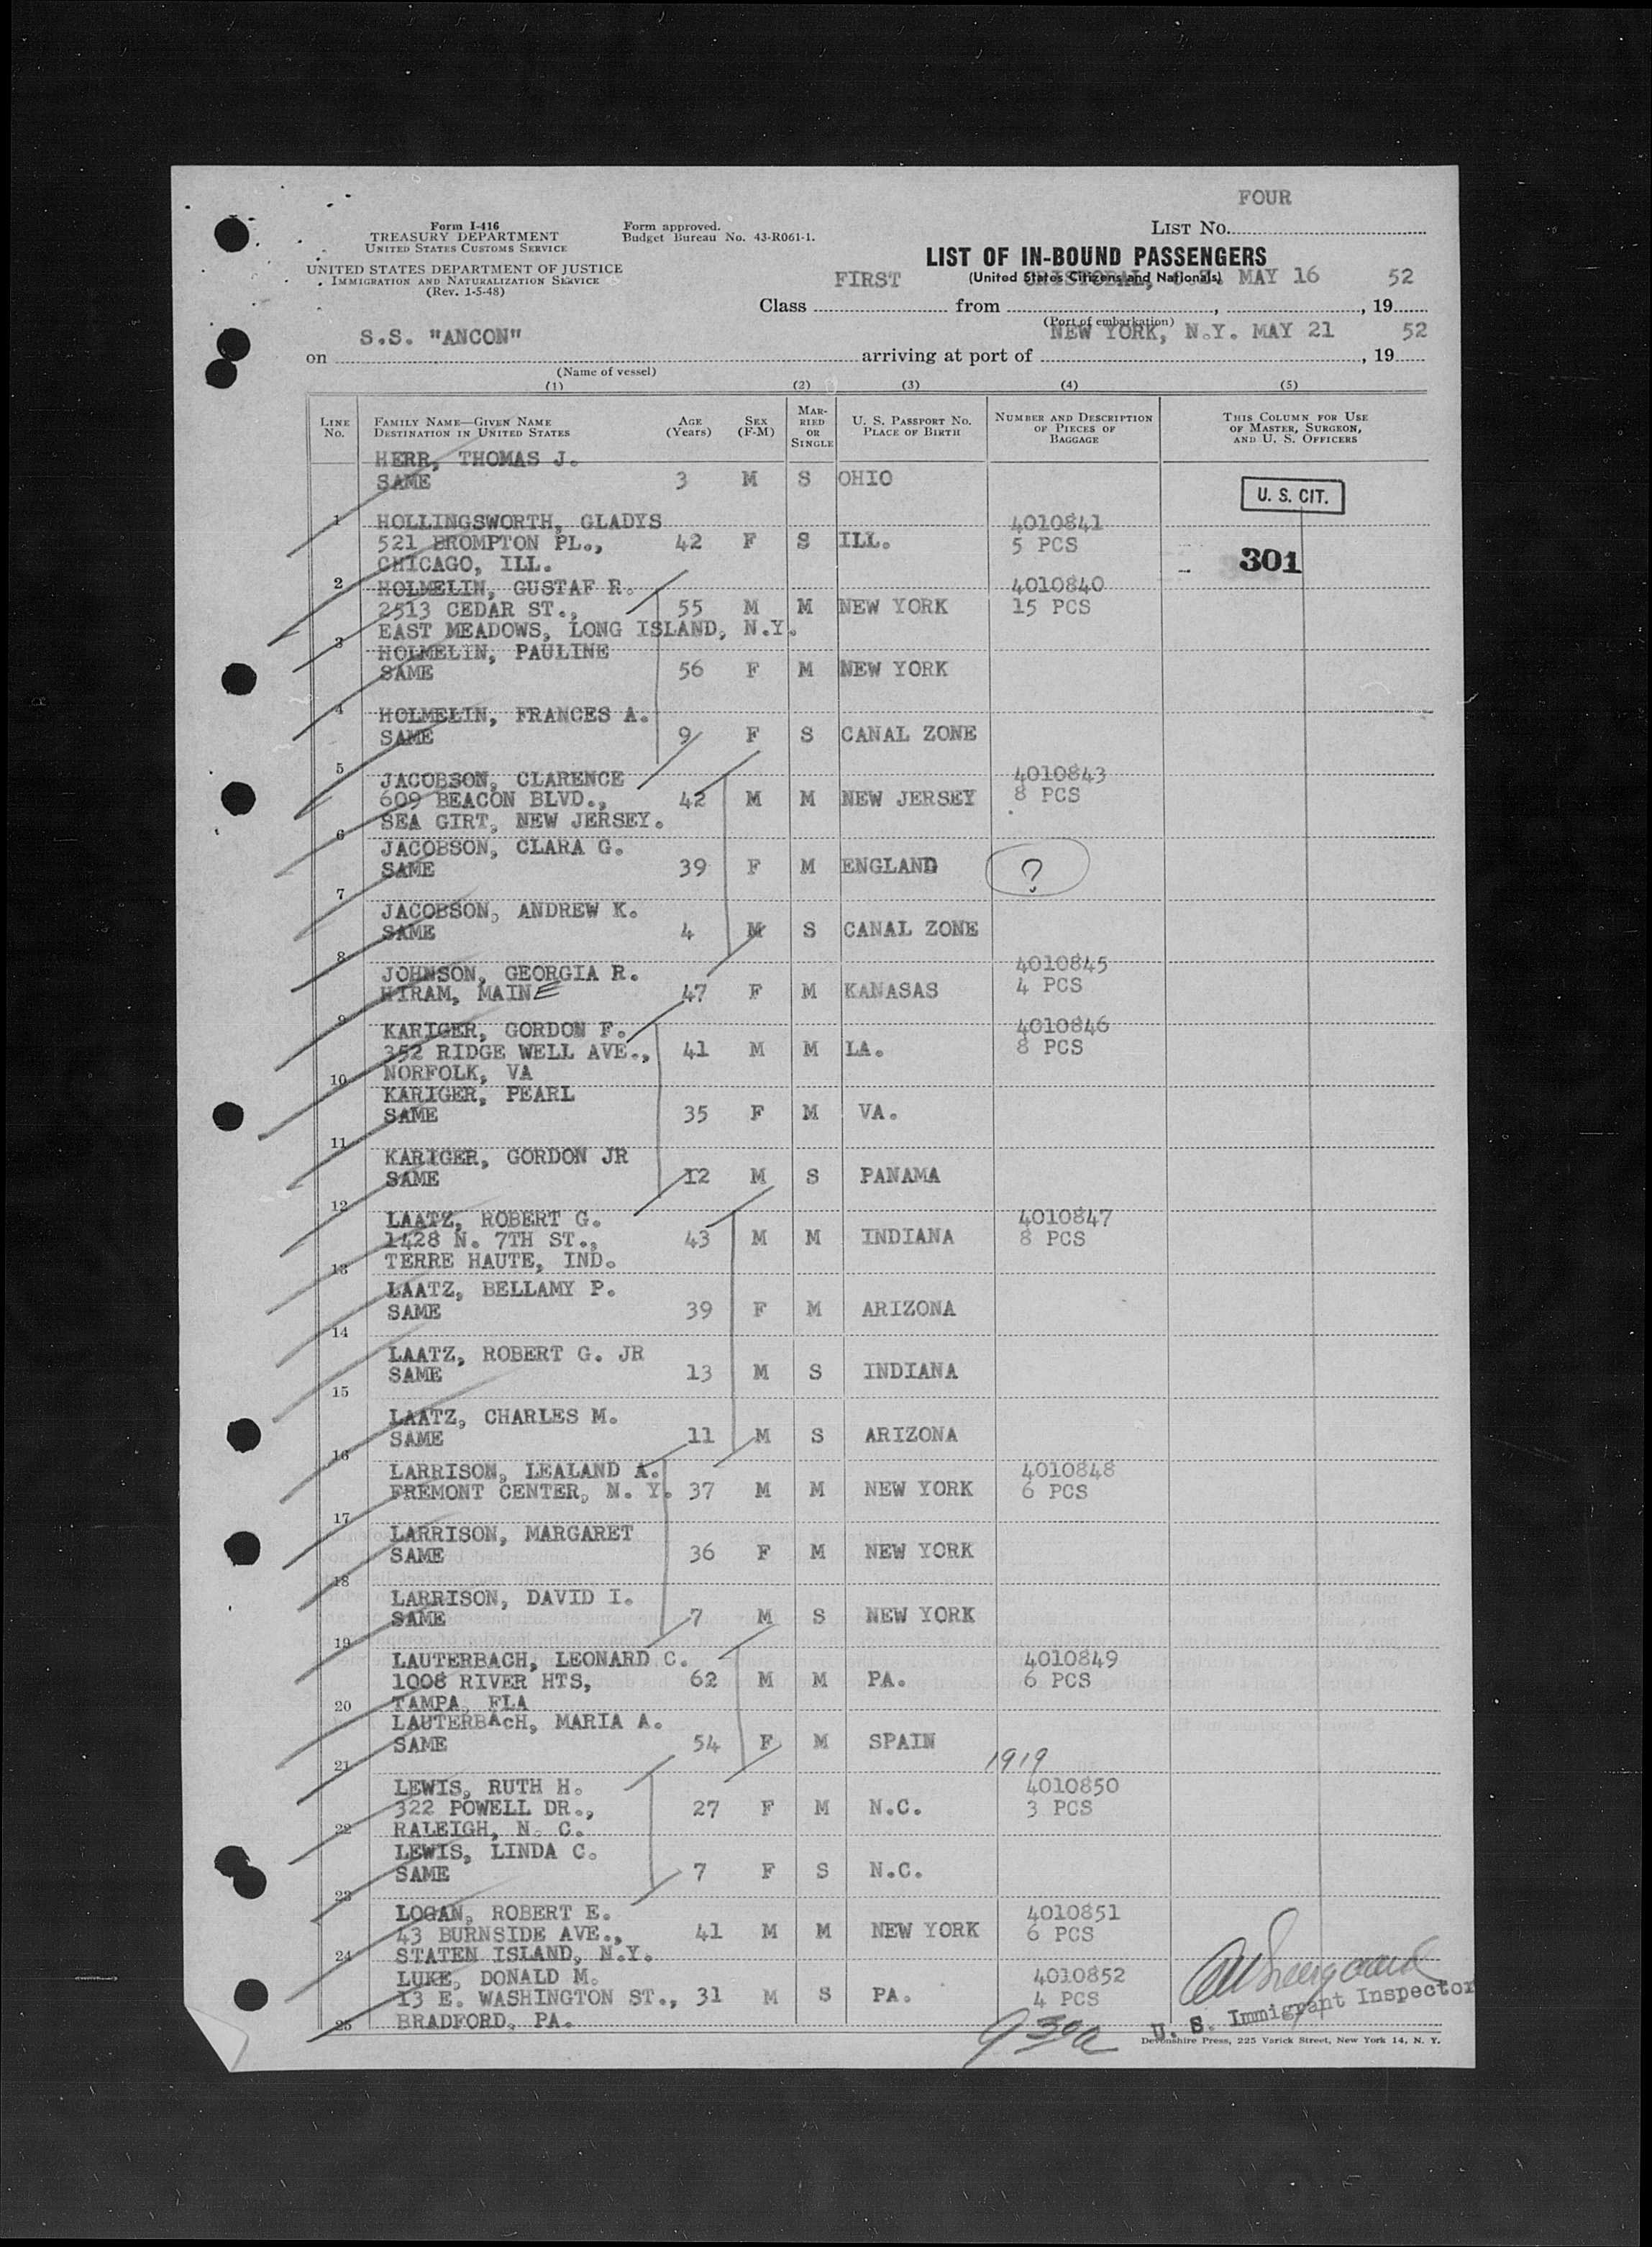 FOUR
Form I-416
TREASURY DEPARTMENT
UNITED STATES CUSTOMS SERVICE
Form approved.
Budget Bureau No. 43-R061-1.
LIST NO.
UNITED STATES DEPARTMENT OF JUSTICE
IMMIGRATION AND NATURALIZATION SERVICE
(Rev. 1-5-48)
LIST OF IN-BOUND PASSENGERS
(United States Citizens and Nationals)
Class FIRST from CRISTOBAL, MAY 16, 19 52
(Port of embarkation)
on S.S. "ANCON" arriving at port of NEW YORK, N.Y. MAY 21, 19 52
(Name of vessel)
(1) (2) (3) (4) (5)
LINE NO. FAMILY NAME—GIVEN NAME DESTINATION IN UNITED STATES AGE (Years) SEX (F-M) MARRIED OR SINGLE U. S. PASSPORT NO. PLACE OF BIRTH NUMBER AND DESCRIPTION OF PIECES OF BAGGAGE THIS COLUMN FOR USE OF MASTER, SURGEON, AND U. S. OFFICERS
HERR, THOMAS J.
SAME 3 M S OHIO
U. S. CIT.
1
HOLLINGSWORTH, GLADYS 4010841
521 BROMPTON PL., 42 F S ILL. 5 PCS
CHICAGO, ILL. 301
2
HOLMELIN, GUSTAF R. 4010840
2513 CEDAR ST., 55 M M NEW YORK 15 PCS
EAST MEADOWS, LONG ISLAND, N.Y.
3
HOLMELIN, PAULINE
SAME 56 F M NEW YORK
4
HOLMELIN, FRANCES A.
SAME 9 F S CANAL ZONE
5
JACOBSON, CLARENCE 4010843
609 BEACON BLVD., 42 M M NEW JERSEY 8 PCS
SEA GIRT, NEW JERSEY.
6
JACOBSON, CLARA G.
SAME 39 F M ENGLAND ?
7
JACOBSON, ANDREW K.
SAME 4 M S CANAL ZONE
8
JOHNSON, GEORGIA R. 4010845
HIRAM, MAINE 47 F M KANASAS 4 PCS
9
KARIGER, GORDON F. 4010846
352 RIDGE WELL AVE., 41 M M LA. 8 PCS
NORFOLK, VA
10
KARIGER, PEARL
SAME 35 F M VA.
11
KARIGER, GORDON JR
SAME 12 M S PANAMA
12
LAATZ, ROBERT G. 4010847
1428 N. 7TH ST., 43 M M INDIANA 8 PCS
TERRE HAUTE, IND.
13
LAATZ, BELLAMY P.
SAME 39 F M ARIZONA
14
LAATZ, ROBERT G. JR
SAME 13 M S INDIANA
15
LAATZ, CHARLES M.
SAME 11 M S ARIZONA
16
LARRISON, LEALAND A. 4010848
FREMONT CENTER, N. Y. 37 M M NEW YORK 6 PCS
17
LARRISON, MARGARET
SAME 36 F M NEW YORK
18
LARRISON, DAVID I.
SAME 7 M S NEW YORK
19
LAUTERBACH, LEONARD C. 4010849
1008 RIVER HTS, 62 M M PA. 6 PCS
20
TAMPA, FLA
LAUTERBAcH, MARIA A.
SAME 54 F M SPAIN
21
1919
LEWIS, RUTH H. 4010850
322 POWELL DR., 27 F M N.C. 3 PCS
22
RALEIGH, N. C.
LEWIS, LINDA C.
SAME 7 F S N.C.
23
LOGAN, ROBERT E. 4010851
43 BURNSIDE AVE., 41 M M NEW YORK 6 PCS
24
STATEN ISLAND, N.Y.
LUKE, DONALD M. 4010852
13 E. WASHINGTON ST., 31 M S PA. 4 PCS
25
BRADFORD, PA.
U. S. Immigrant Inspector
930a
Devonshire Press, 225 Varick Street, New York 14, N. Y.